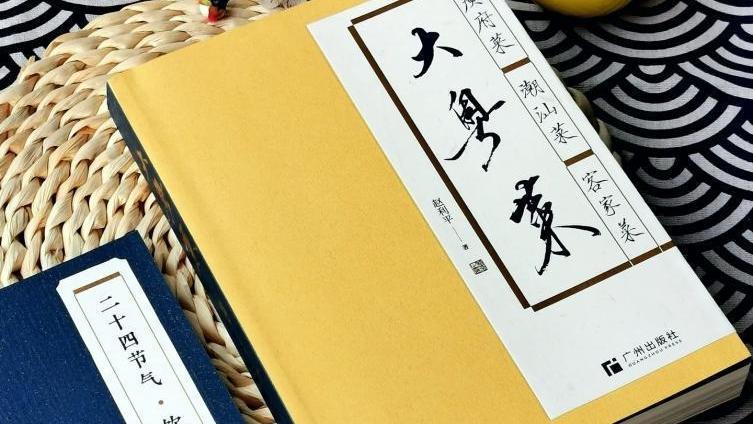 大粤菜
府菜
潮汕菜
客家菜
赵利平——著
广州出版社
GUANGZHOU PRESS
二十四节气·饮